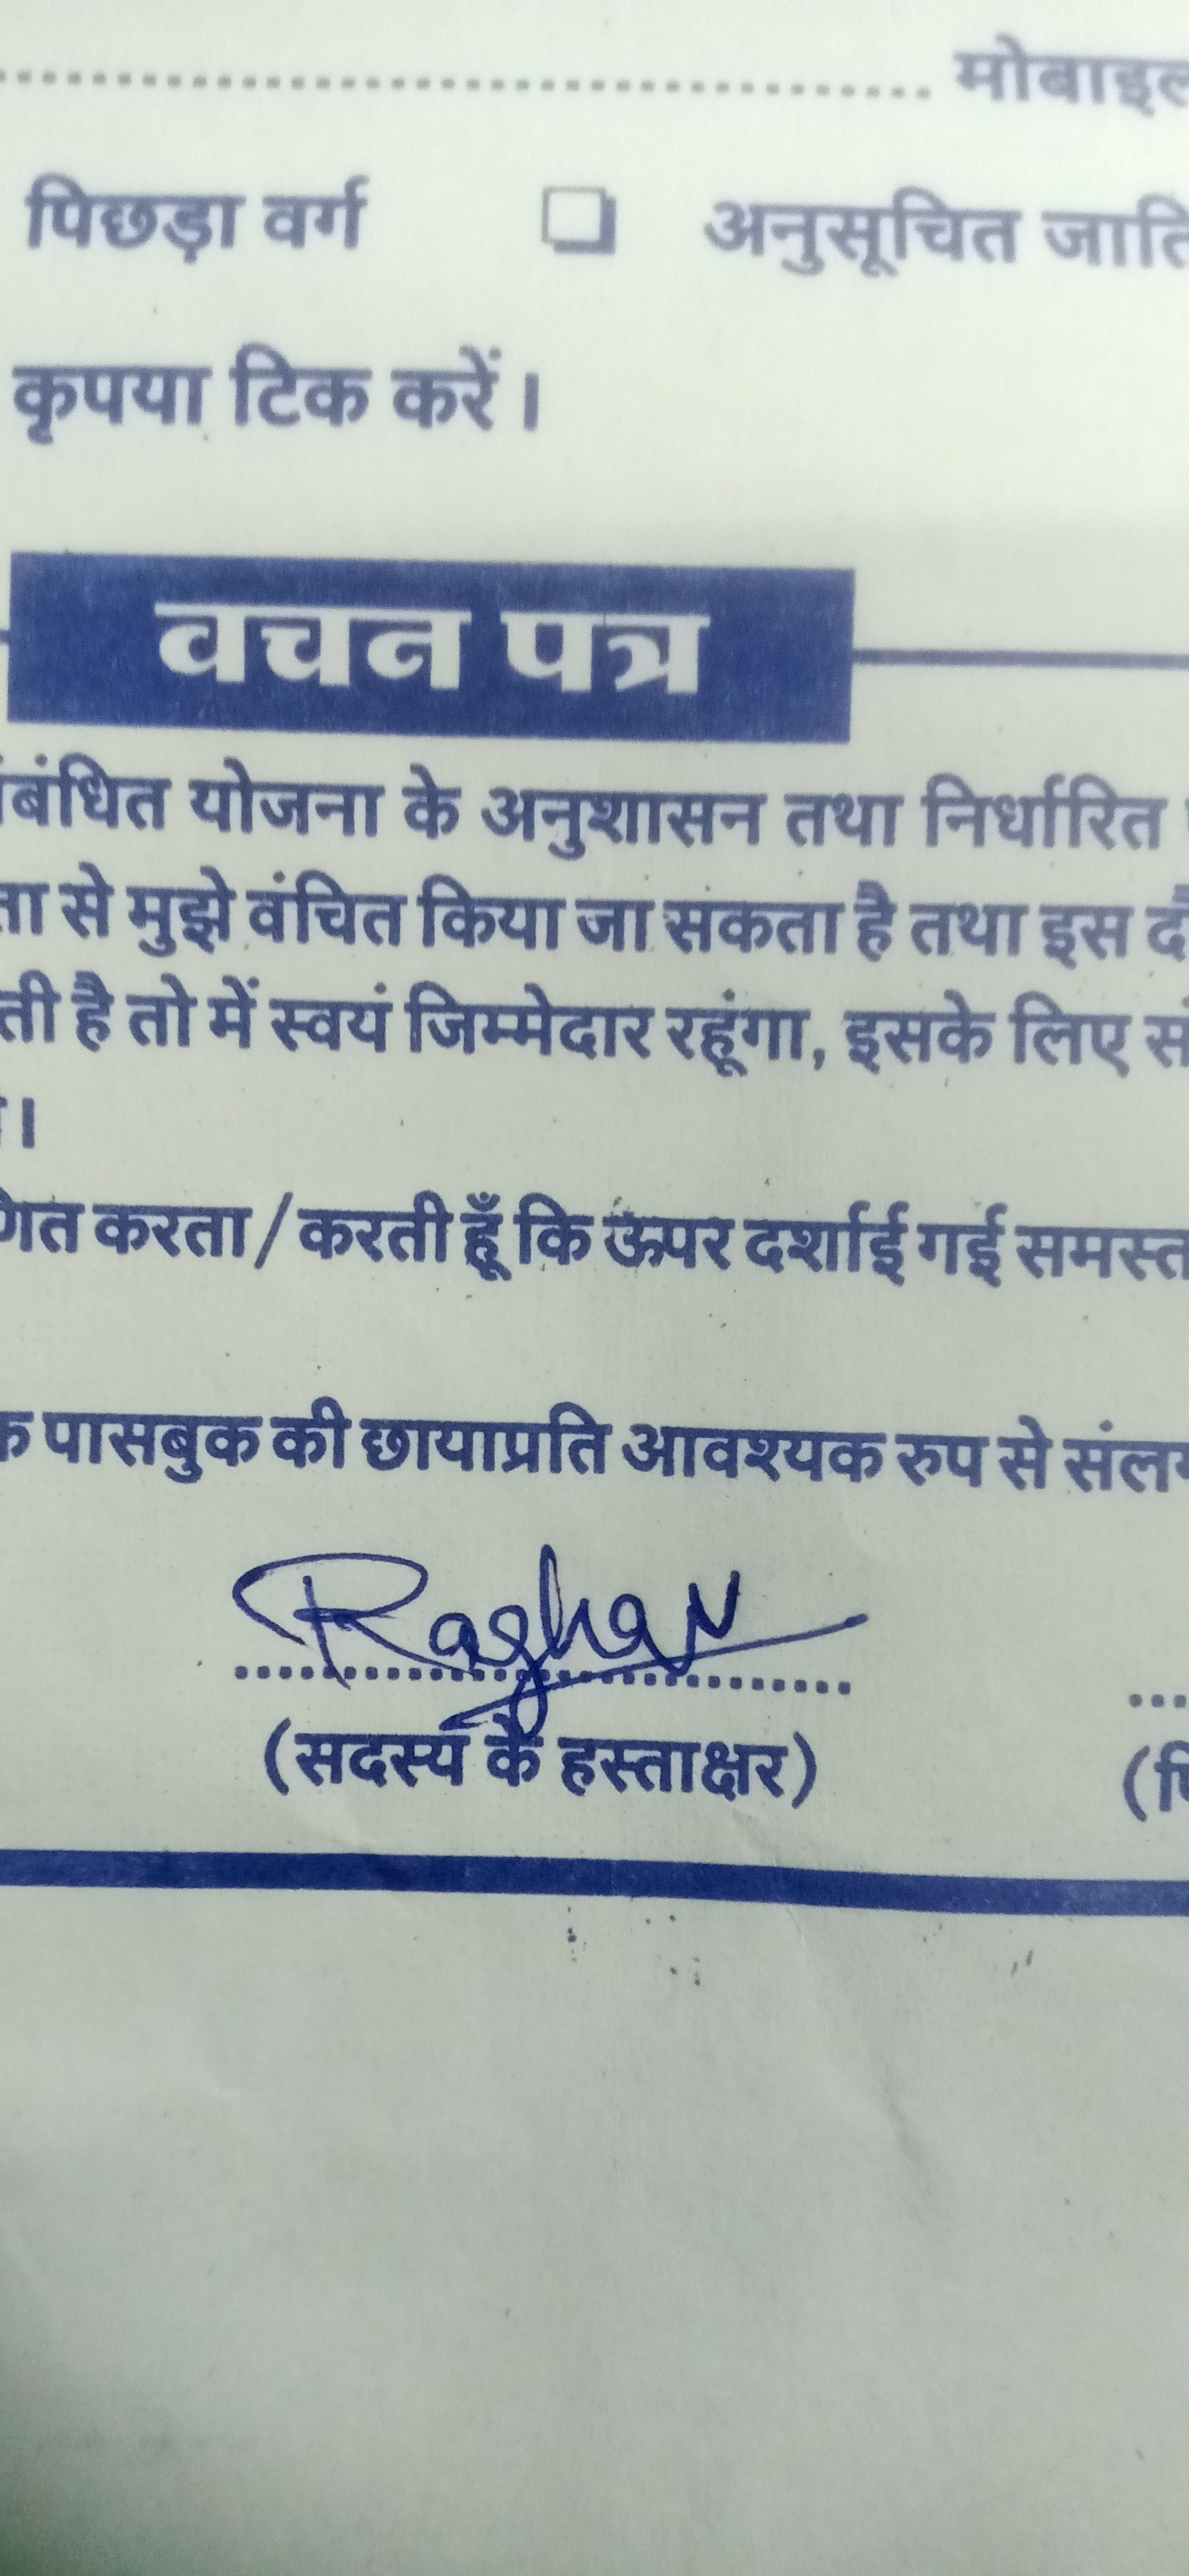 मोबाइल
पिछड़ा वर्ग अनुसूचित जाति
कृपया टिक करें।
वचन पत्र
योजना के अनुशासन तथा निर्धारित
से मुझे वंचित किया जा सकता है तथा इस
है तो में स्वयं जिम्मेदार रहूंगा, इसके लिए
करता / करती हूँ कि ऊपर दर्शाई गई समस्त
पासबुक की छायाप्रति आवश्यक रुप से
(सदस्य के हस्ताक्षर)